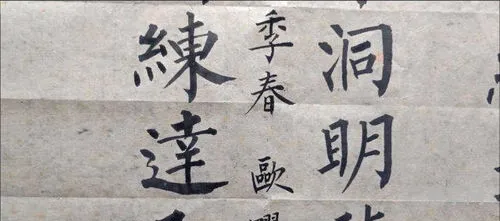 洞明
季春 歐
練達